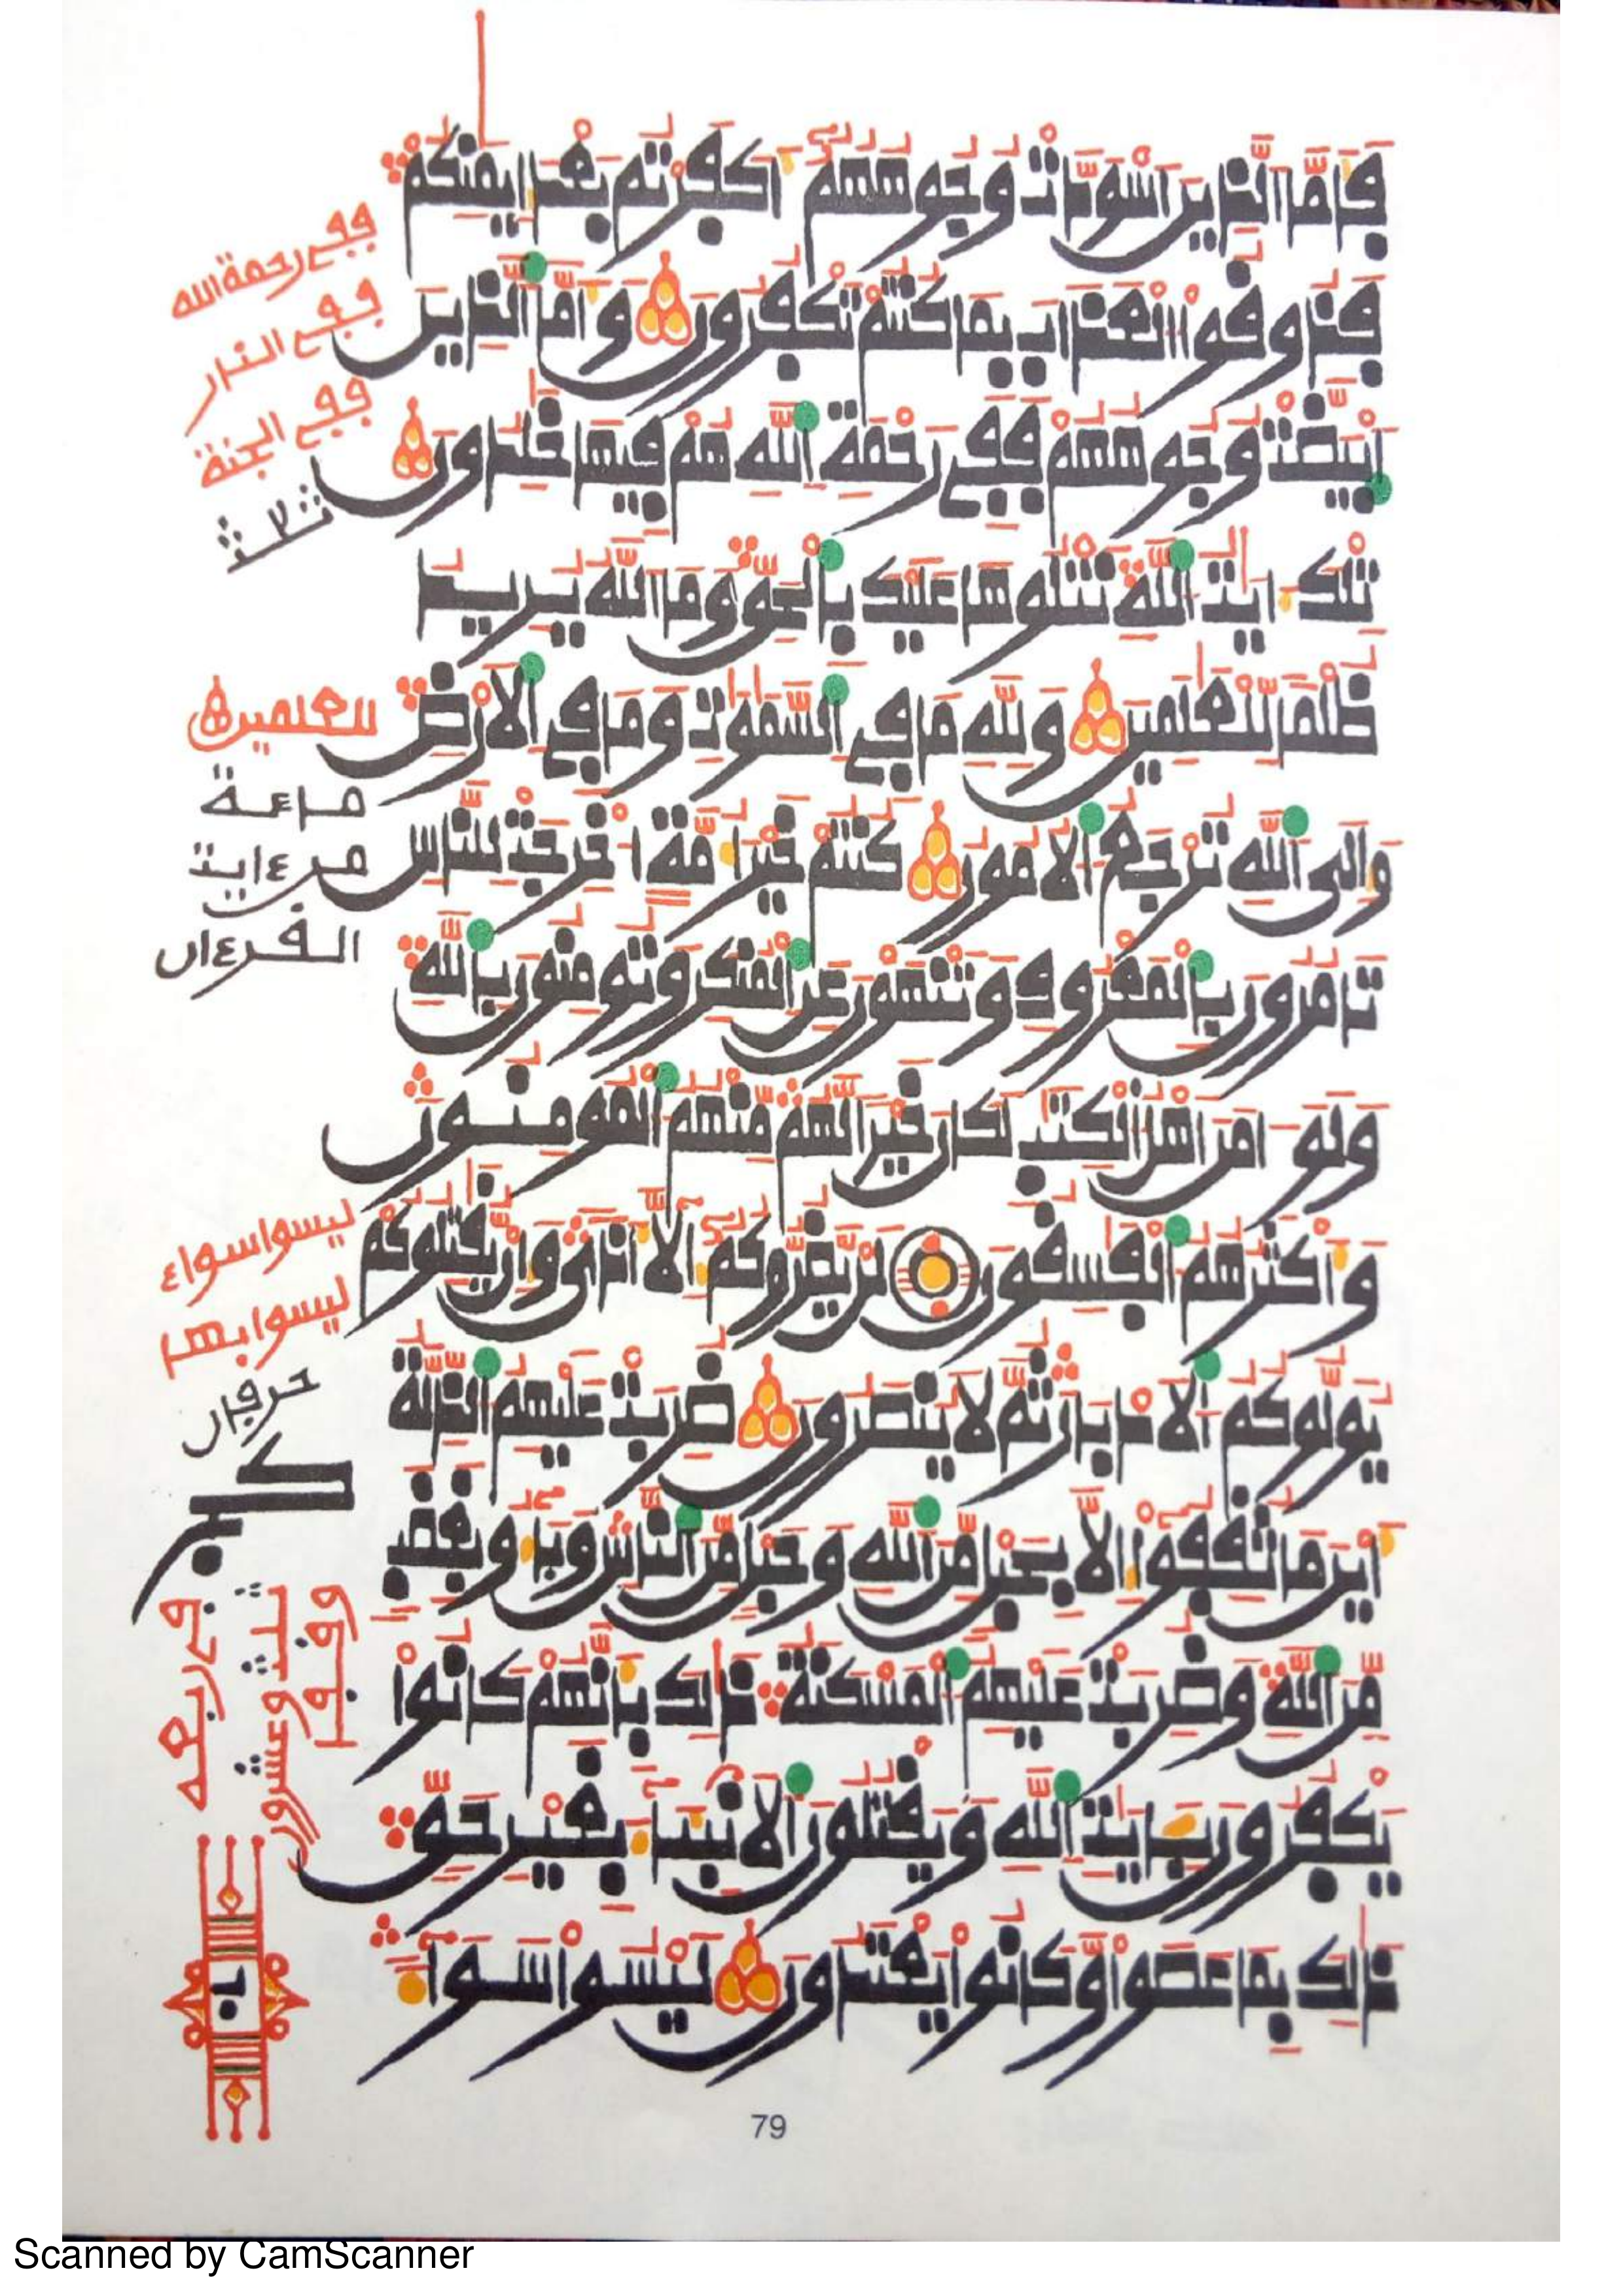 فَأَمَّا الَّذِينَ اسْوَدَّتْ وُجُوهُهُمْ أَكَفَرْتُم بَعْدَ إِيمَٰنِكُمْ
فَذُوقُوا الْعَذَابَ بِمَا كُنتُمْ تَكْفُرُونَ وَأَمَّا الَّذِينَ
ابْيَضَّتْ وُجُوهُهُمْ فَفِي رَحْمَةِ اللَّهِ هُمْ فِيهَا خَٰلِدُونَ
تِلْكَ ءَايَٰتُ اللَّهِ نَتْلُوهَا عَلَيْكَ بِالْحَقِّ وَمَا اللَّهُ يُرِيدُ
ظُلْمًا لِّلْعَٰلَمِينَ وَلِلَّهِ مَا فِي السَّمَٰوَٰتِ وَمَا فِي الْأَرْضِ
وَإِلَى اللَّهِ تُرْجَعُ الْأُمُورُ كُنتُمْ خَيْرَ أُمَّةٍ أُخْرِجَتْ لِلنَّاسِ
تَامُرُونَ بِالْمَعْرُوفِ وَتَنْهَوْنَ عَنِ الْمُنكَرِ وَتُومِنُونَ بِاللَّهِ
وَلَوْ ءَامَنَ أَهْلُ الْكِتَٰبِ لَكَانَ خَيْرًا لَّهُم مِّنْهُمُ الْمُومِنُونَ
وَأَكْثَرُهُمُ الْفَٰسِقُونَ لَن يَضُرُّوكُمُ إِلَّا أَذًى وَإِن يُقَٰتِلُوكُمْ
يُوَلُّوكُمُ الْأَدْبَارَ ثُمَّ لَا يُنصَرُونَ ضُرِبَتْ عَلَيْهِمُ الذِّلَّةُ
أَيْنَ مَا ثُقِفُوا إِلَّا بِحَبْلٍ مِّنَ اللَّهِ وَحَبْلٍ مِّنَ النَّاسِ وَبَاءُو بِغَضَبٍ
مِّنَ اللَّهِ وَضُرِبَتْ عَلَيْهِمُ الْمَسْكَنَةُ ذَٰلِكَ بِأَنَّهُمْ كَانُوا
يَكْفُرُونَ بِـَٔايَٰتِ اللَّهِ وَيَقْتُلُونَ الْأَنبِـَٔاءَ بِغَيْرِ حَقٍّ
ذَٰلِكَ بِمَا عَصَوا وَّكَانُوا يَعْتَدُونَ لَيْسُوا سَوَاءً
ففي رحمة الله
ففي النار
ففي الجنة
ثلاث
للعلمين
ماعة
من ءايت
القرءان
ليسوا سواء
ليسوا بها
حرفان
79
Scanned by CamScanner